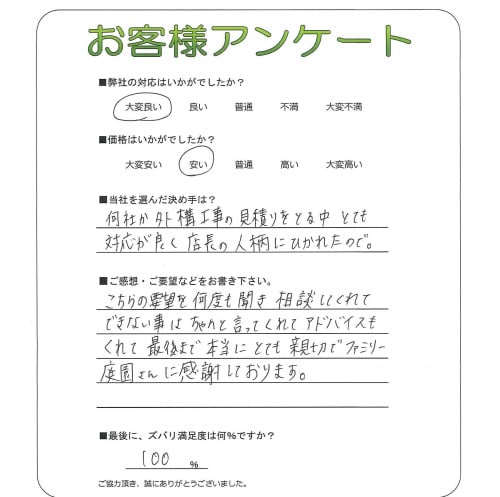 お客様アンケート
■弊社の対応はいかがでしたか？
大変良い 良い 普通 不満 大変不満
■価格はいかがでしたか？
大変安い 安い 普通 高い 大変高い
■当社を選んだ決め手は？
何社か外構工事の見積りをとる中 とても
対応が良く 店長の人柄にひかれたので。
■ご感想・ご要望などをお書き下さい。
こちらの要望を何度も聞き 相談してくれて
できない事は ちゃんと言ってくれて アドバイスも
くれて 最後まで 本当に とても 親切で ファミリー
庭園さんに感謝しております。
■最後に、ズバリ満足度は何%ですか？
100 %
ご協力頂き、誠にありがとうございました。